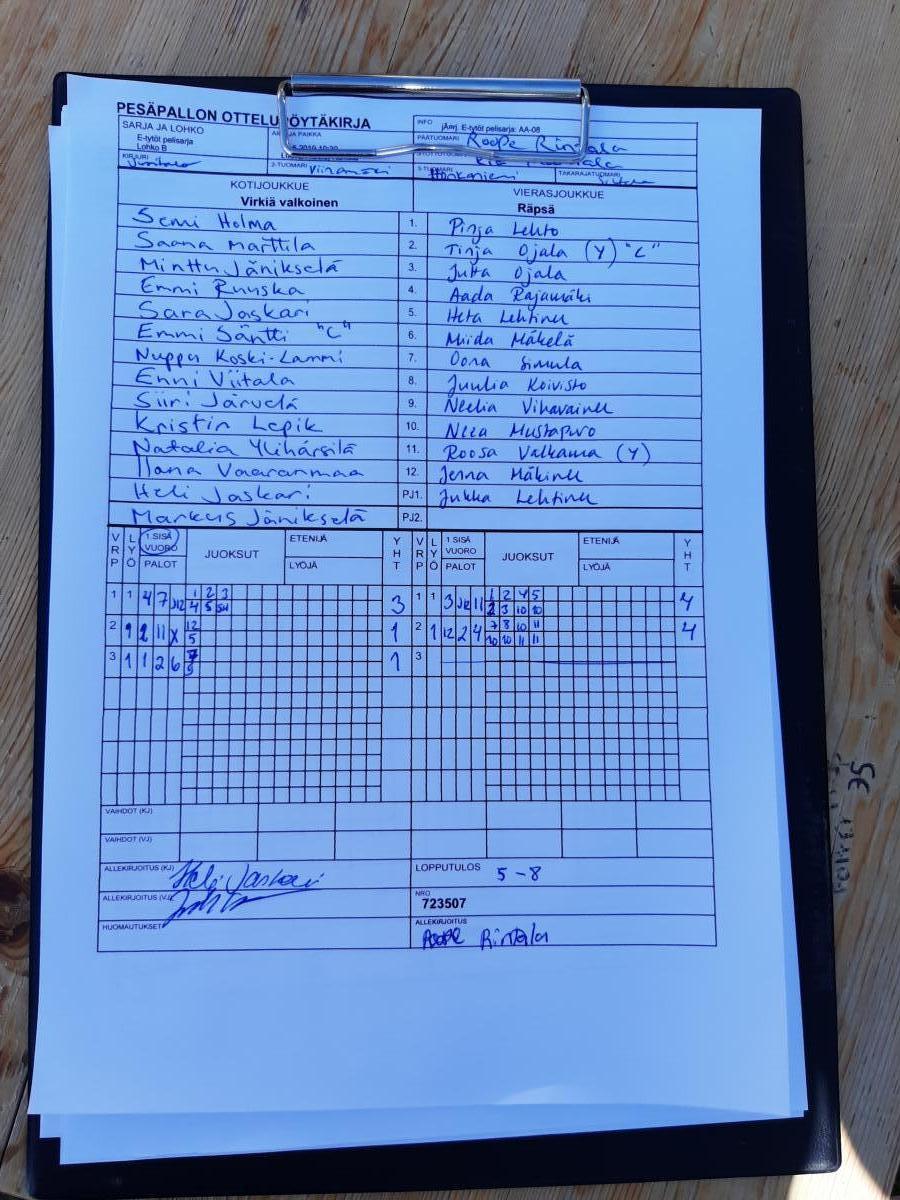 PESÄPALLON OTTELUPÖYTÄKIRJA
SARJA JA LOHKO
E-tytöt pelisarja
Lohko B
JA PAIKKA
INFO
jAmj. E-tytöt pelisarja: AA-08
PÄÄTUOMARI Roope Rintala
KIRJURI
2-TUOMARI
TAKARAJATUOMARI
KOTIJOUKKUE
Virkiä valkoinen
VIERASJOUKKUE
Räpsä
Senni Holma 1. Pinja Lehto
Saana Marttila 2. Tinja Ojala (Y) "C"
Minttu Jänikselä 3. Jutta Ojala
Emmi Ruuska 4. Aada Rajamäki
Sara Jaskari 5. Heta Lehtinen
Emmi Säntti "C" 6. Miida Mäkelä
Nuppu Koski-Lammi 7. Oona Simula
Enni Viitala 8. Juulia Koivisto
Siiri Järvelä 9. Neelia Vihavainen
Kristin Lepik 10. Neea Mustapuro
Natalia Ylihärsilä 11. Roosa Valkama (Y)
Ilana Vaaranmaa 12. Jenna Mäkinen
Heli Jaskari PJ1. Jukka Lehtinen
Markus Jänikselä PJ2.
VRP LYÖ 1 SISÄ VUORO PALOT JUOKSUT ETENIJÄ LYÖJÄ YHT VRP LYÖ 1 SISÄ VUORO PALOT JUOKSUT ETENIJÄ LYÖJÄ YHT
1 1 4 7 1 2 3 3 1 1 3 11 1 2 4 5 4
4 5 3 10 10
2 2 11 X 12 1 2 1 12 2 4 7 8 10 11 4
5 10 10 11 11
3 1 1 2 6 1 3
VAIHDOT (KJ)
VAIHDOT (VJ)
ALLEKIRJOITUS (KJ) Heli Jaskari
LOPPUTULOS 5-8
ALLEKIRJOITUS (VJ)
NRO
723507
HUOMAUTUKSET
ALLEKIRJOITUS
Roope Rintala